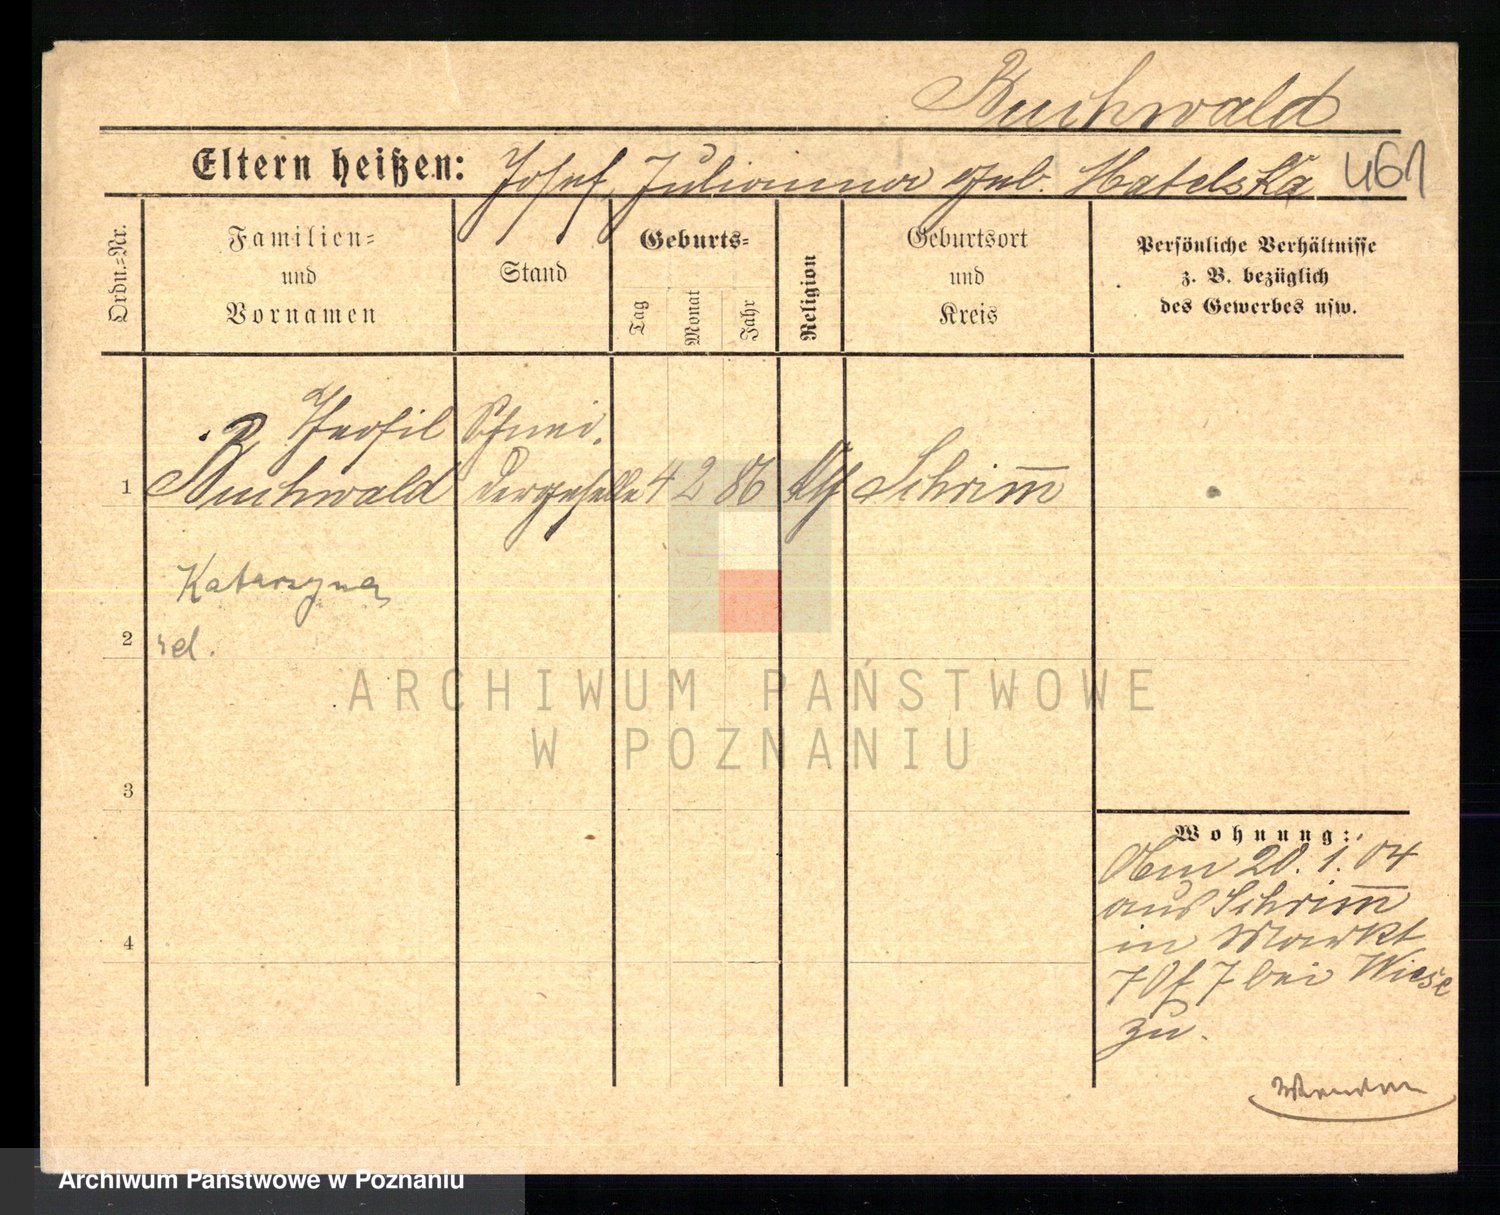 Buchwald
Eltern heißen: Josef, Julianna geb. Matelska
461
Ordn.-Nr.
Familien-
und
Vornamen
Stand
Geburts-
Tag
Monat
Jahr
Religion
Geburtsort
und
Kreis
Persönliche Verhältnisse
z. B. bezüglich
des Gewerbes usw.
Theofil Schnei-
1 Buchwald dergeselle 4 2 86 Schrim̅
Katarzyna
2 rel.
ARCHIWUM PAŃSTWOWE
W POZNANIU
3
Wohnung:
20.1.04
aus Schrim̅
in Markt
7 bei Wiese
zu.
4
Wenden
Archiwum Państwowe w Poznaniu